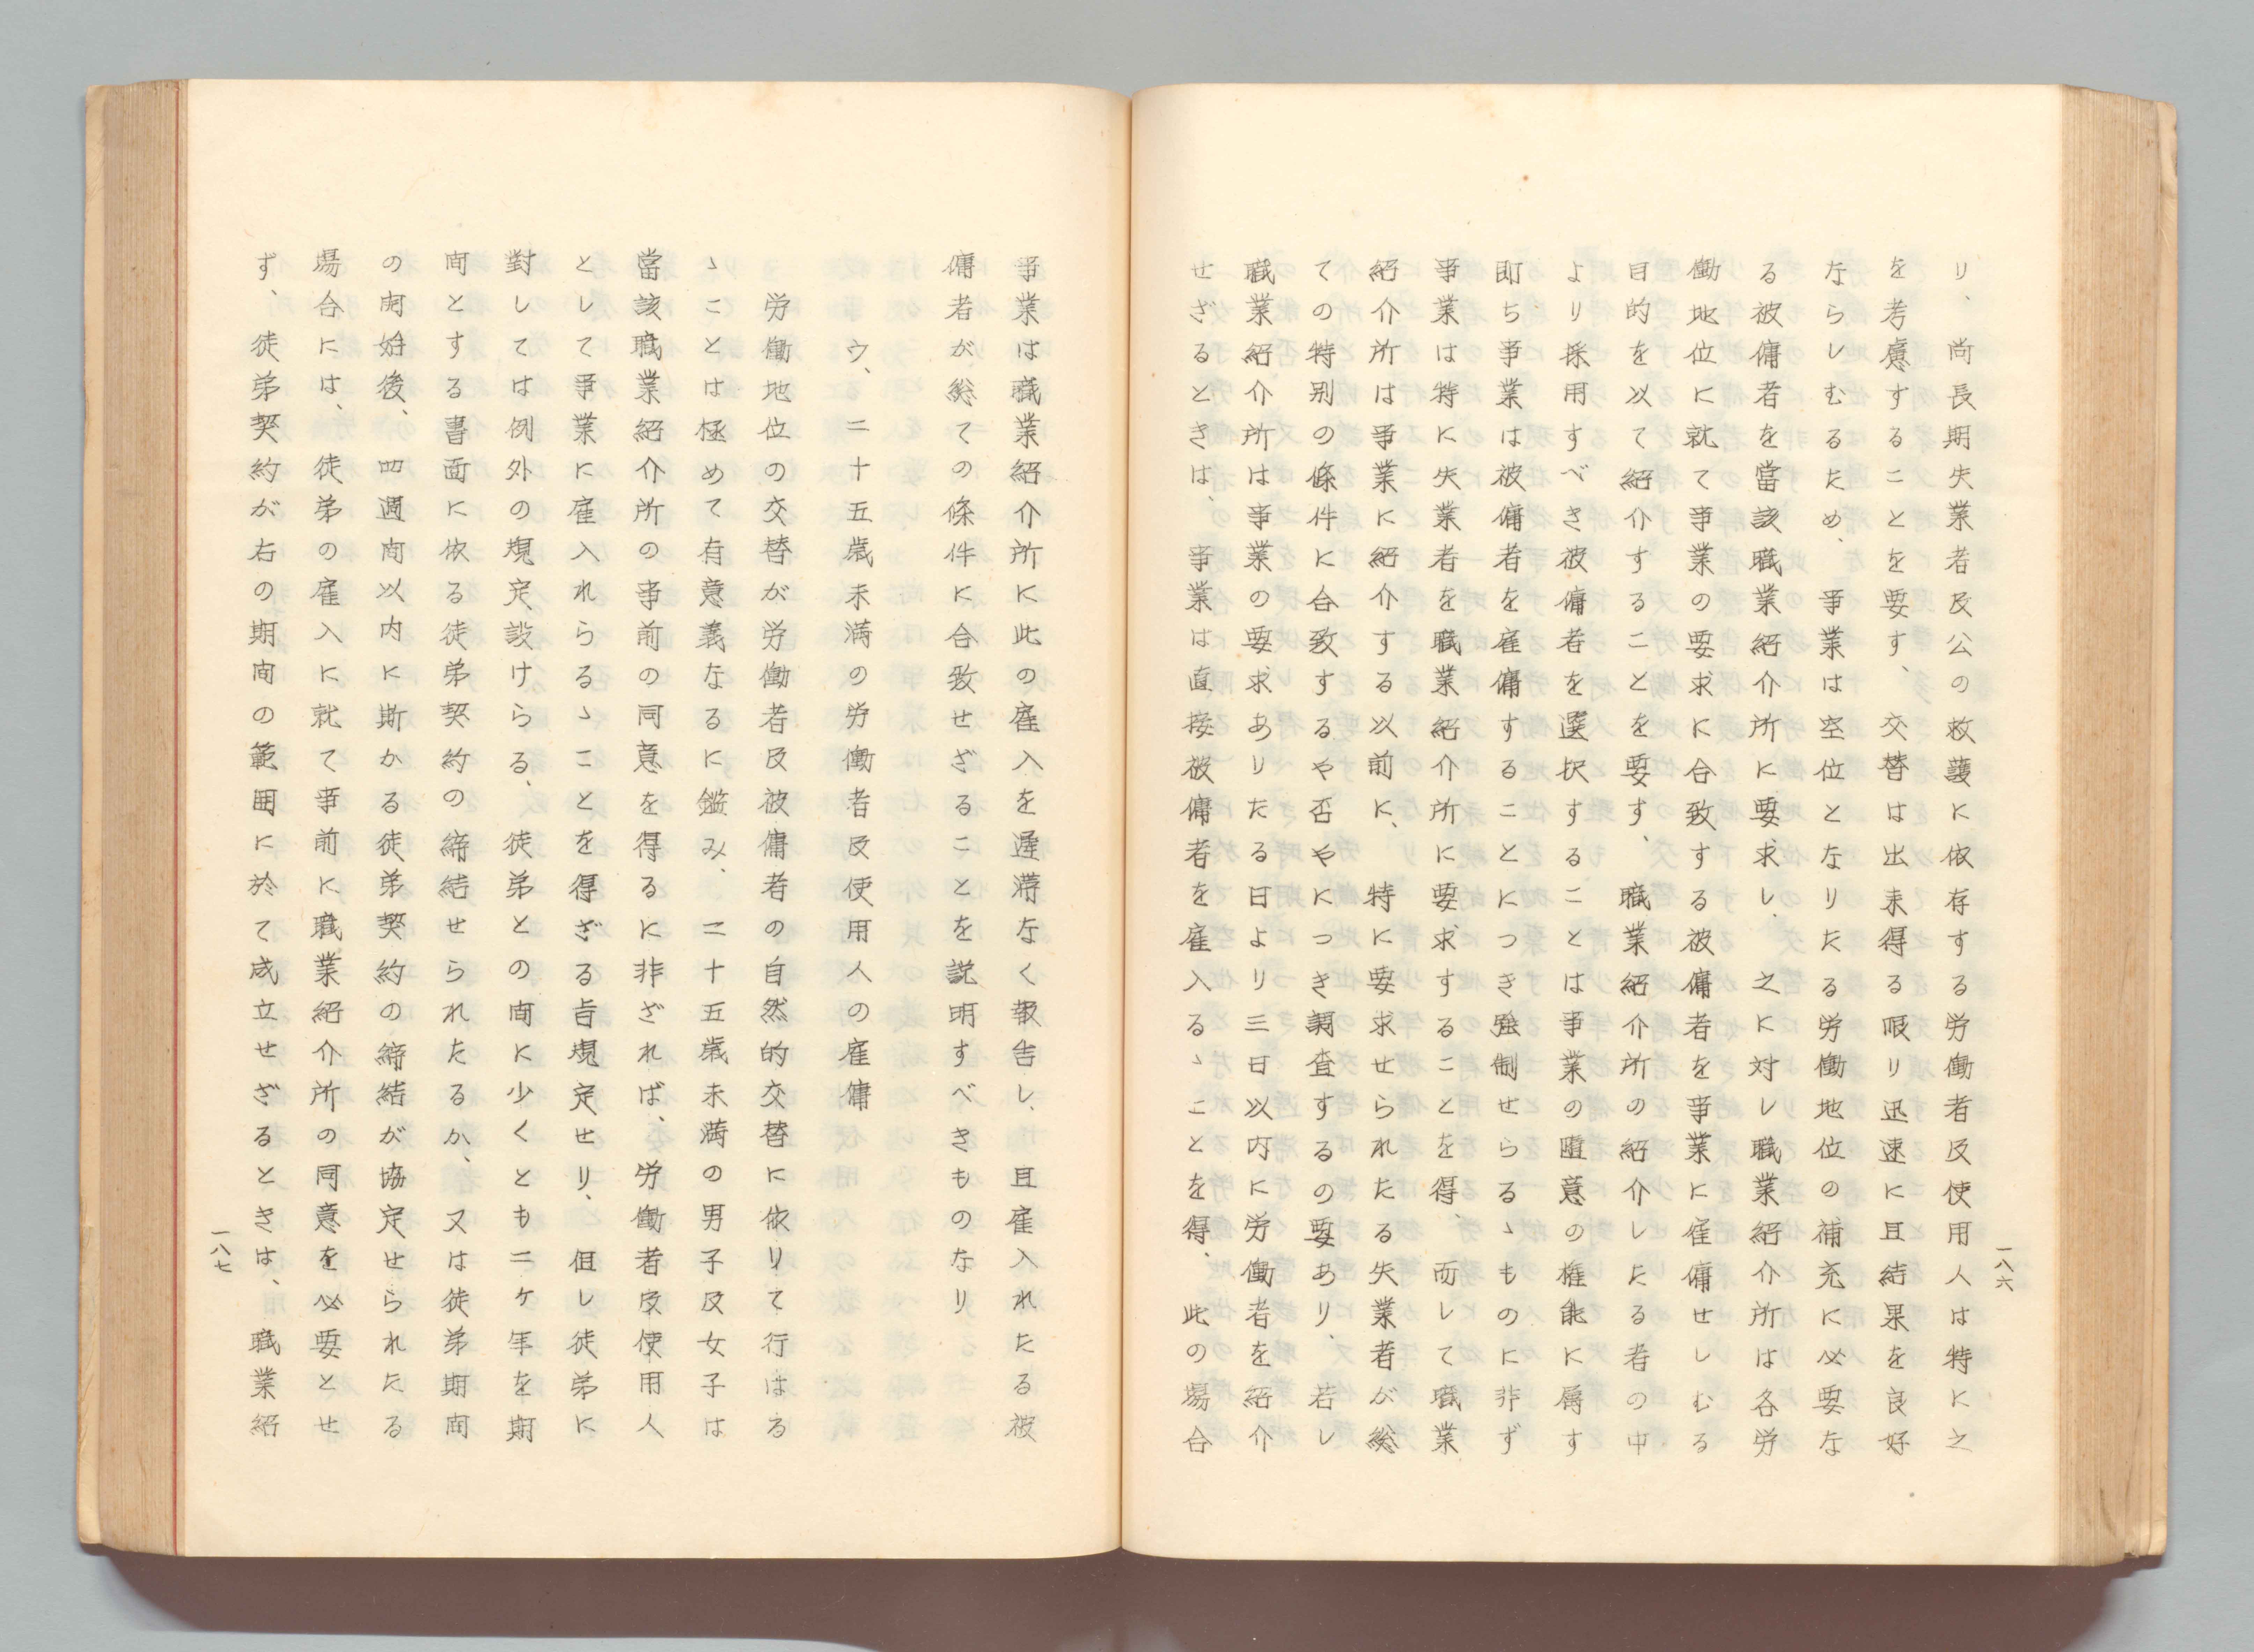 り、尚長期失業者及公の救護に依存する労働者及使用人は特に之
を考慮することを要す、交替は出来得る限り迅速に且結果を良好
ならしむるため、事業は空位となりたる労働地位の補充に必要な
る被傭者を當該職業紹介所に要求し、之に対し職業紹介所は各労
働地位に就て事業の要求に合致する被傭者を事業に雇傭せしむる
目的を以て紹介することを要す、職業紹介所の紹介したる者の中
より採用すべき被傭者を選択することは事業の随意の権能に属す
即ち事業は被傭者を雇傭することにつき強制せらるゝものに非ず
事業は特に失業者を職業紹介所に要求することを得、而して職業
紹介所は事業に紹介する以前に、特に要求せられたる失業者が総
ての特別の條件に合致するや否やにつき調査するの要あり、若し
職業紹介所は事業の要求ありたる日より三日以内に労働者を紹介
せざるときは、事業は直接被傭者を雇入るゝことを得、此の場合
一八六
事業は職業紹介所に此の雇入を遅滞なく報告し、且雇入れたる被
傭者が総ての條件に合致せざることを説明すべきものなり
ウ、二十五歳未満の労働者及使用人の雇傭
労働地位の交替が労働者及被傭者の自然的交替に依りて行はる
ゝことは極めて有意義なるに鑑み、二十五歳未満の男子及女子は
當該職業紹介所の事前の同意を得るに非ざれば、労働者及使用人
として事業に雇入れらるゝことを得ざる旨規定せり、但し徒弟に
對しては例外の規定設けらる、徒弟との間に少くとも二ケ年を期
間とする書面に依る徒弟契約の締結せられたるか、又は徒弟期間
の開始後、四週間以内に斯かる徒弟契約の締結が協定せられたる
場合には、徒弟の雇入に就て事前に職業紹介所の同意を必要とせ
ず、徒弟契約が右の期間の範囲に於て成立せざるときは、職業紹
一八七